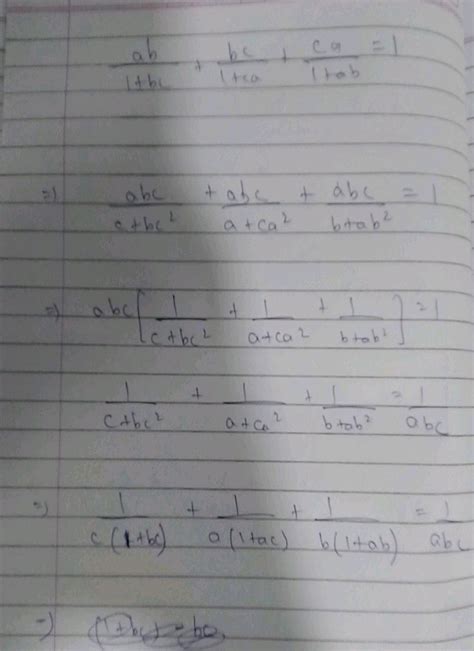 ab/1+bc + bc/1+ca + ca/1+ab = 1
=) abc/c+bc² + abc/a+ca² + abc/b+ab² = 1
=) abc[1/c+bc² + 1/a+ca² + 1/b+ab²] = 1
1/c+bc² + 1/a+ca² + 1/b+ab² = 1/abc
=) 1/c(1+bc) + 1/a(1+ac) + 1/b(1+ab) = 1/abc
=)